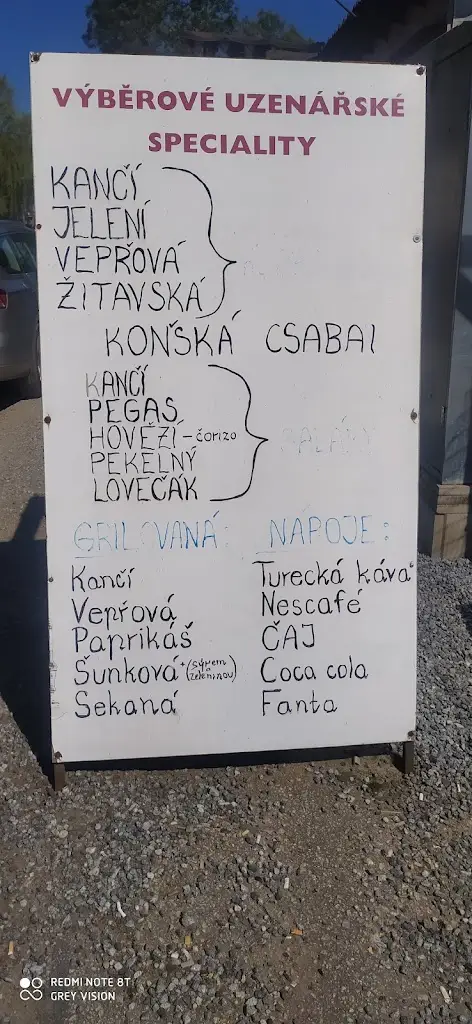 VÝBĚROVÉ UZENÁŘSKÉ
SPECIALITY
KANČÍ
JELENÍ
VEPŘOVÁ
ŽITAVSKÁ
KOŇSKÁ CSABAI
KANČÍ
PEGAS
HOVĚZÍ - čorizo
PEKELNÝ
LOVEČÁK
GRILOVANÁ: NÁPOJE:
Kančí Turecká káva
Vepřová Nescafé
Paprikáš ČAJ
Šunková + (sýrem a zeleninou) Coca cola
Sekaná Fanta
REDMI NOTE 8T
GREY VISION